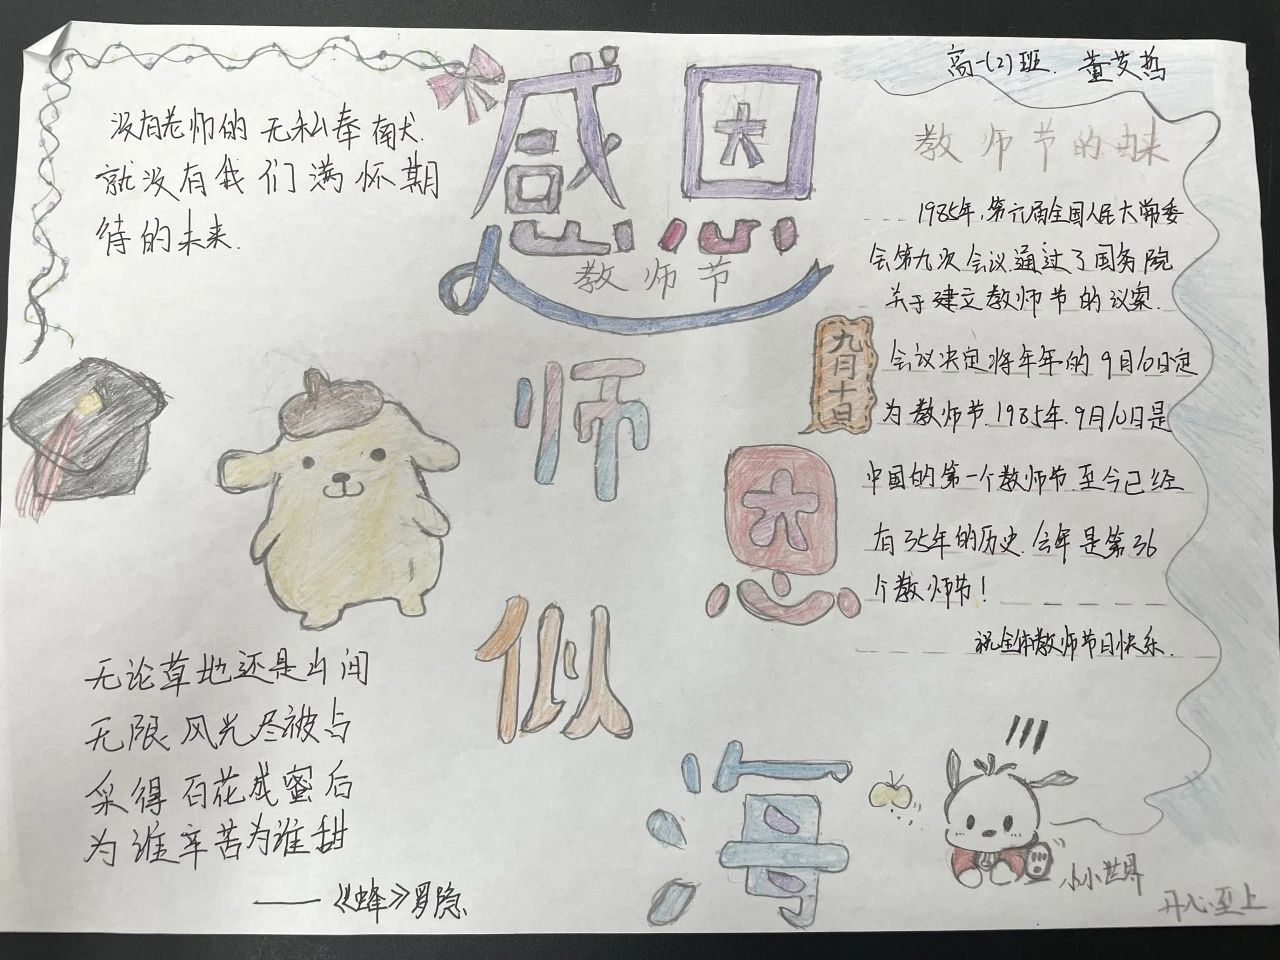 高一(2)班.
感恩
教师节
没有老师的无私奉献.
就没有我们满怀期
待的未来.
教师节的由来
1985年,第六届全国人民大常委
会第九次会议.通过了国务院
关于建立教师节的议案.
会议决定将年年的9月10日定
为教师节.1985年.9月10日是
中国的第一个教师节.至今已经
有35年的历史.今年是第36
个教师节!
祝全体教师节日快乐.
九月十日
师
恩
似
海
无论草地还是山间
无限风光尽被占
采得百花成蜜后
为谁辛苦为谁甜
——《蜂》罗隐
小小世界
开心至上